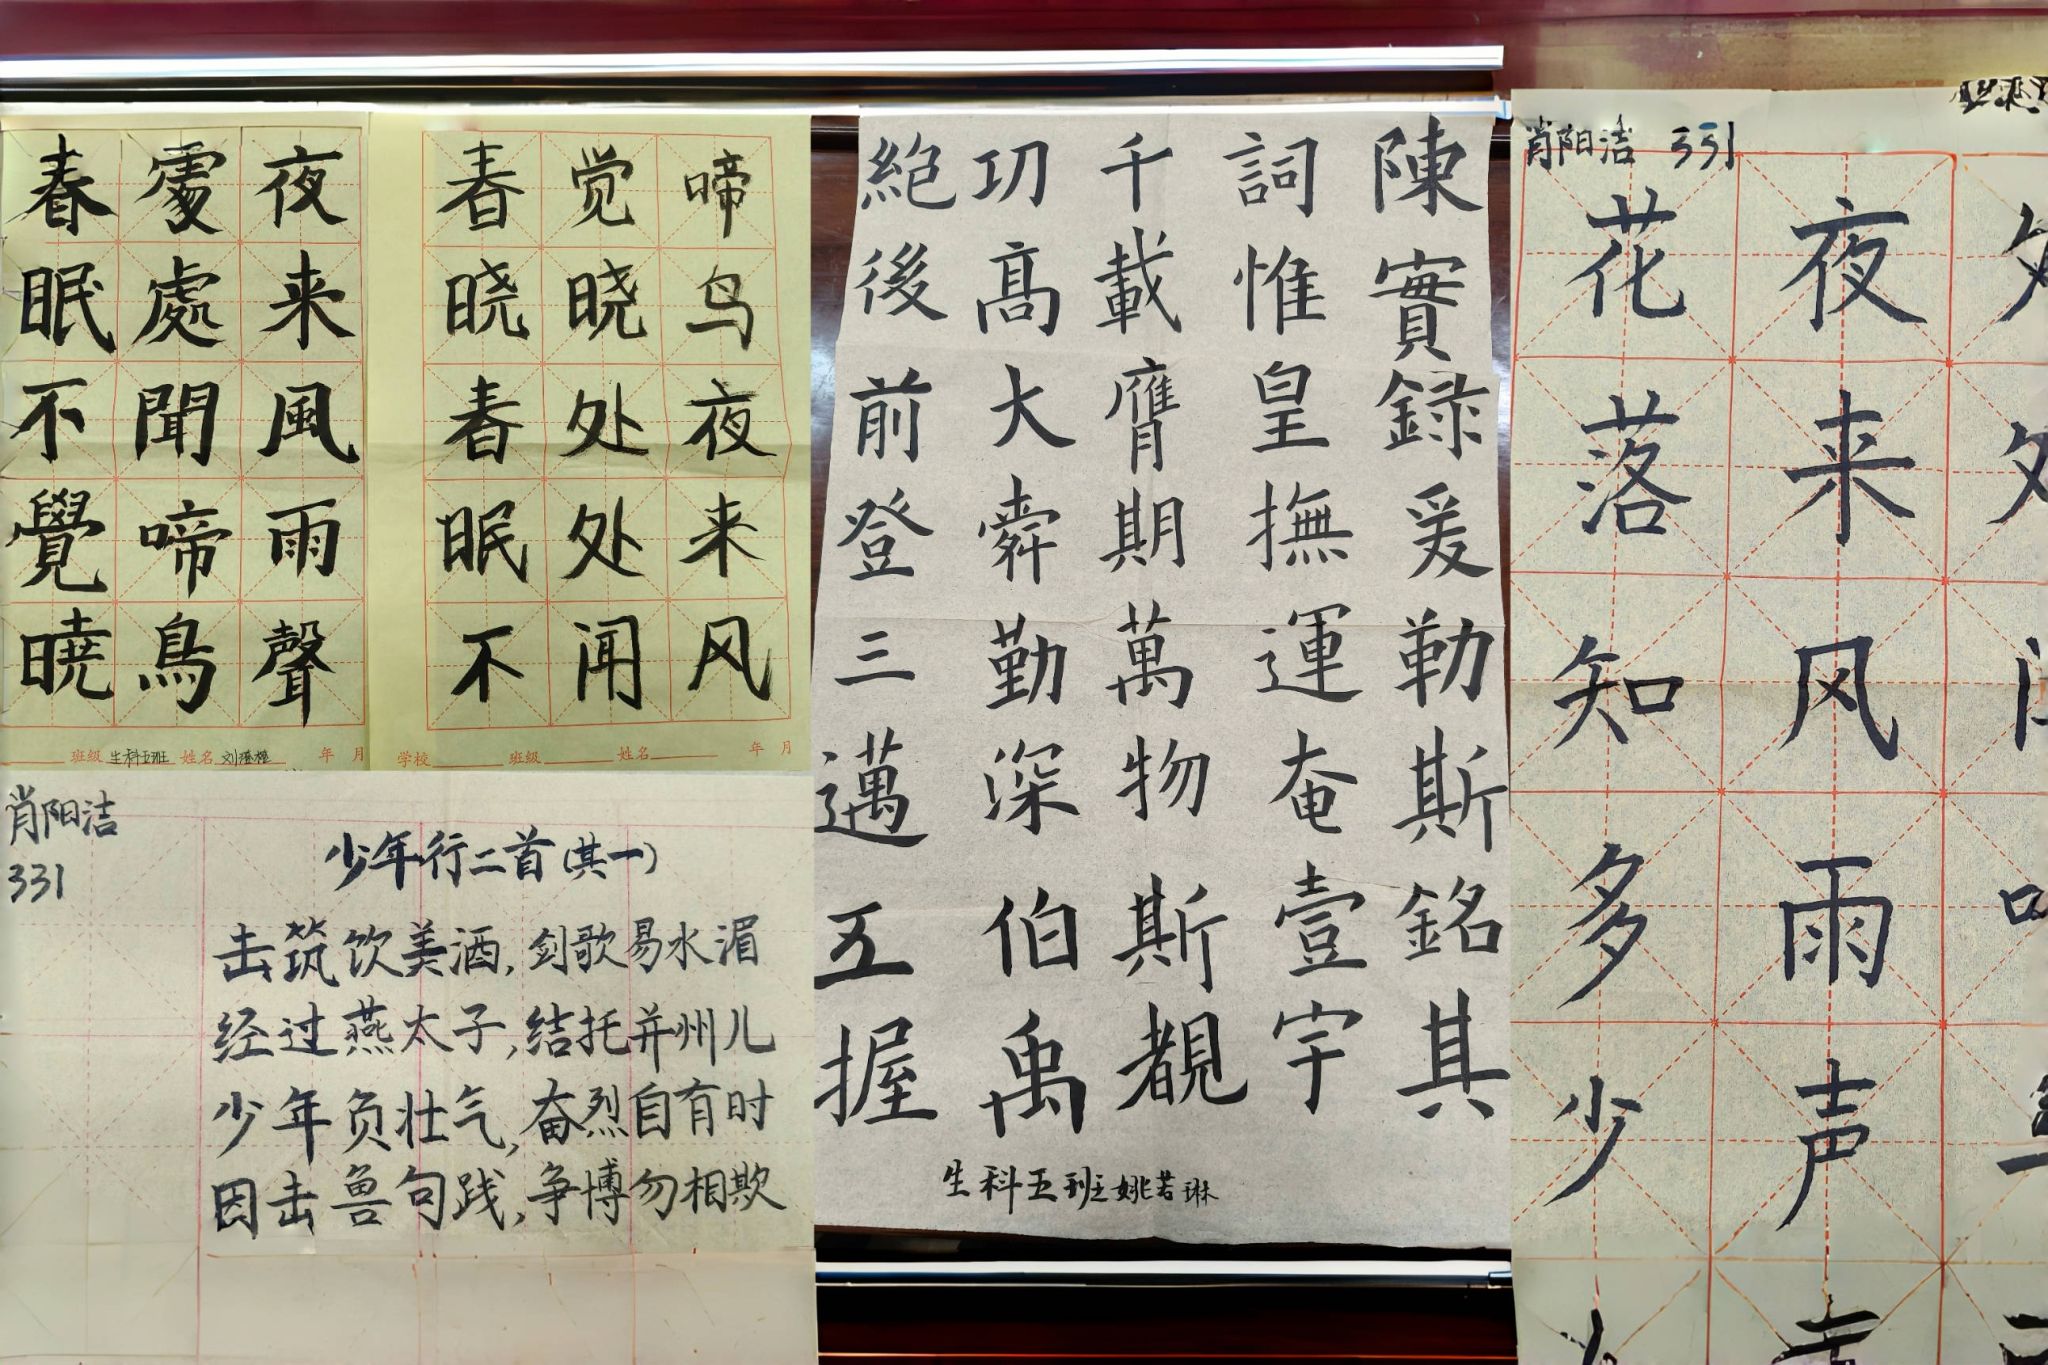 春眠不覺曉
處處聞啼鳥
夜来風雨聲
班级 生科五班 姓名 刘 年 月
春晓春眠不
觉晓处处闻
啼鸟夜来风
学校 班级 姓名 年 月
肖阳洁
331
少年行二首(其一)
击筑饮美酒,剑歌易水湄
经过燕太子,结托并州儿
少年负壮气,奋烈自有时
因击鲁句践,争博勿相欺
陳實録爰勒斯銘其
詞惟皇撫運奄壹宇
千載膺期萬物斯覩
功髙大舜勤深伯禹
絶後前登三邁五握
生科五班姚若琳
肖阳洁 331
夜来风雨声
花落知多少